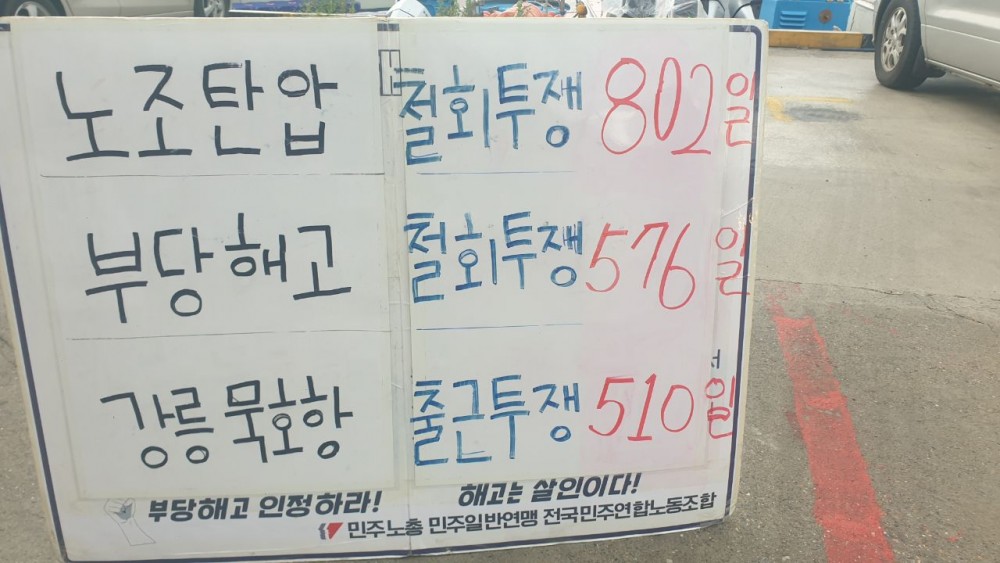 노조탄압 철회투쟁 802일
부당해고 철회투쟁 576일
강릉묵호항 출근투쟁 510일
부당해고 인정하라! 해고는 살인이다!
민주노총 민주일반연맹 전국민주연합노동조합